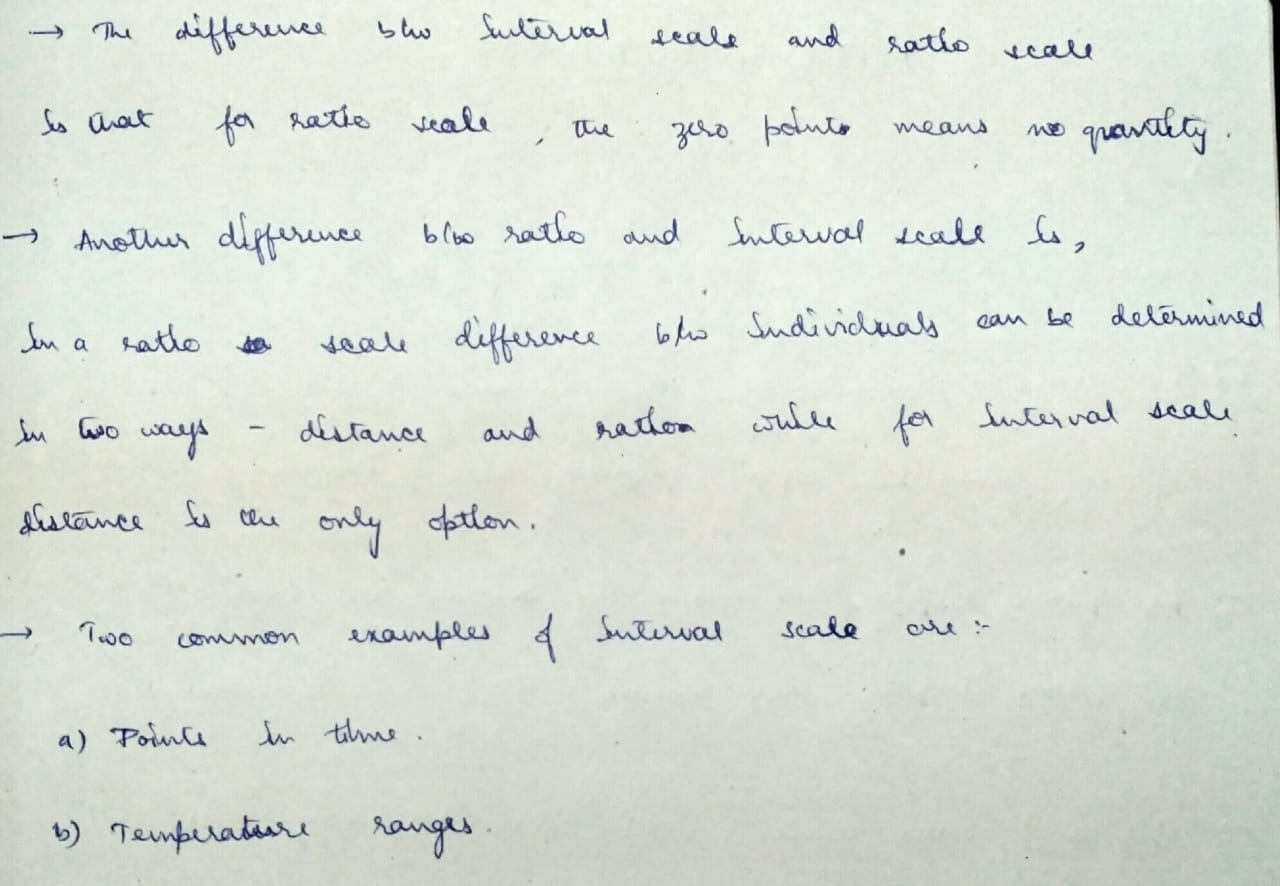 → The difference b/w Interval scale and ratio scale
is that for ratio scale, the zero points means no quantity.
→ Another difference b/w ratio and interval scale is,
in a ratio scale difference b/w individuals can be determined
in two ways - distance and ratio while for interval scale
distance is the only option.
→ Two common examples of interval scale are :-
a) Points in time.
b) Temperature ranges.